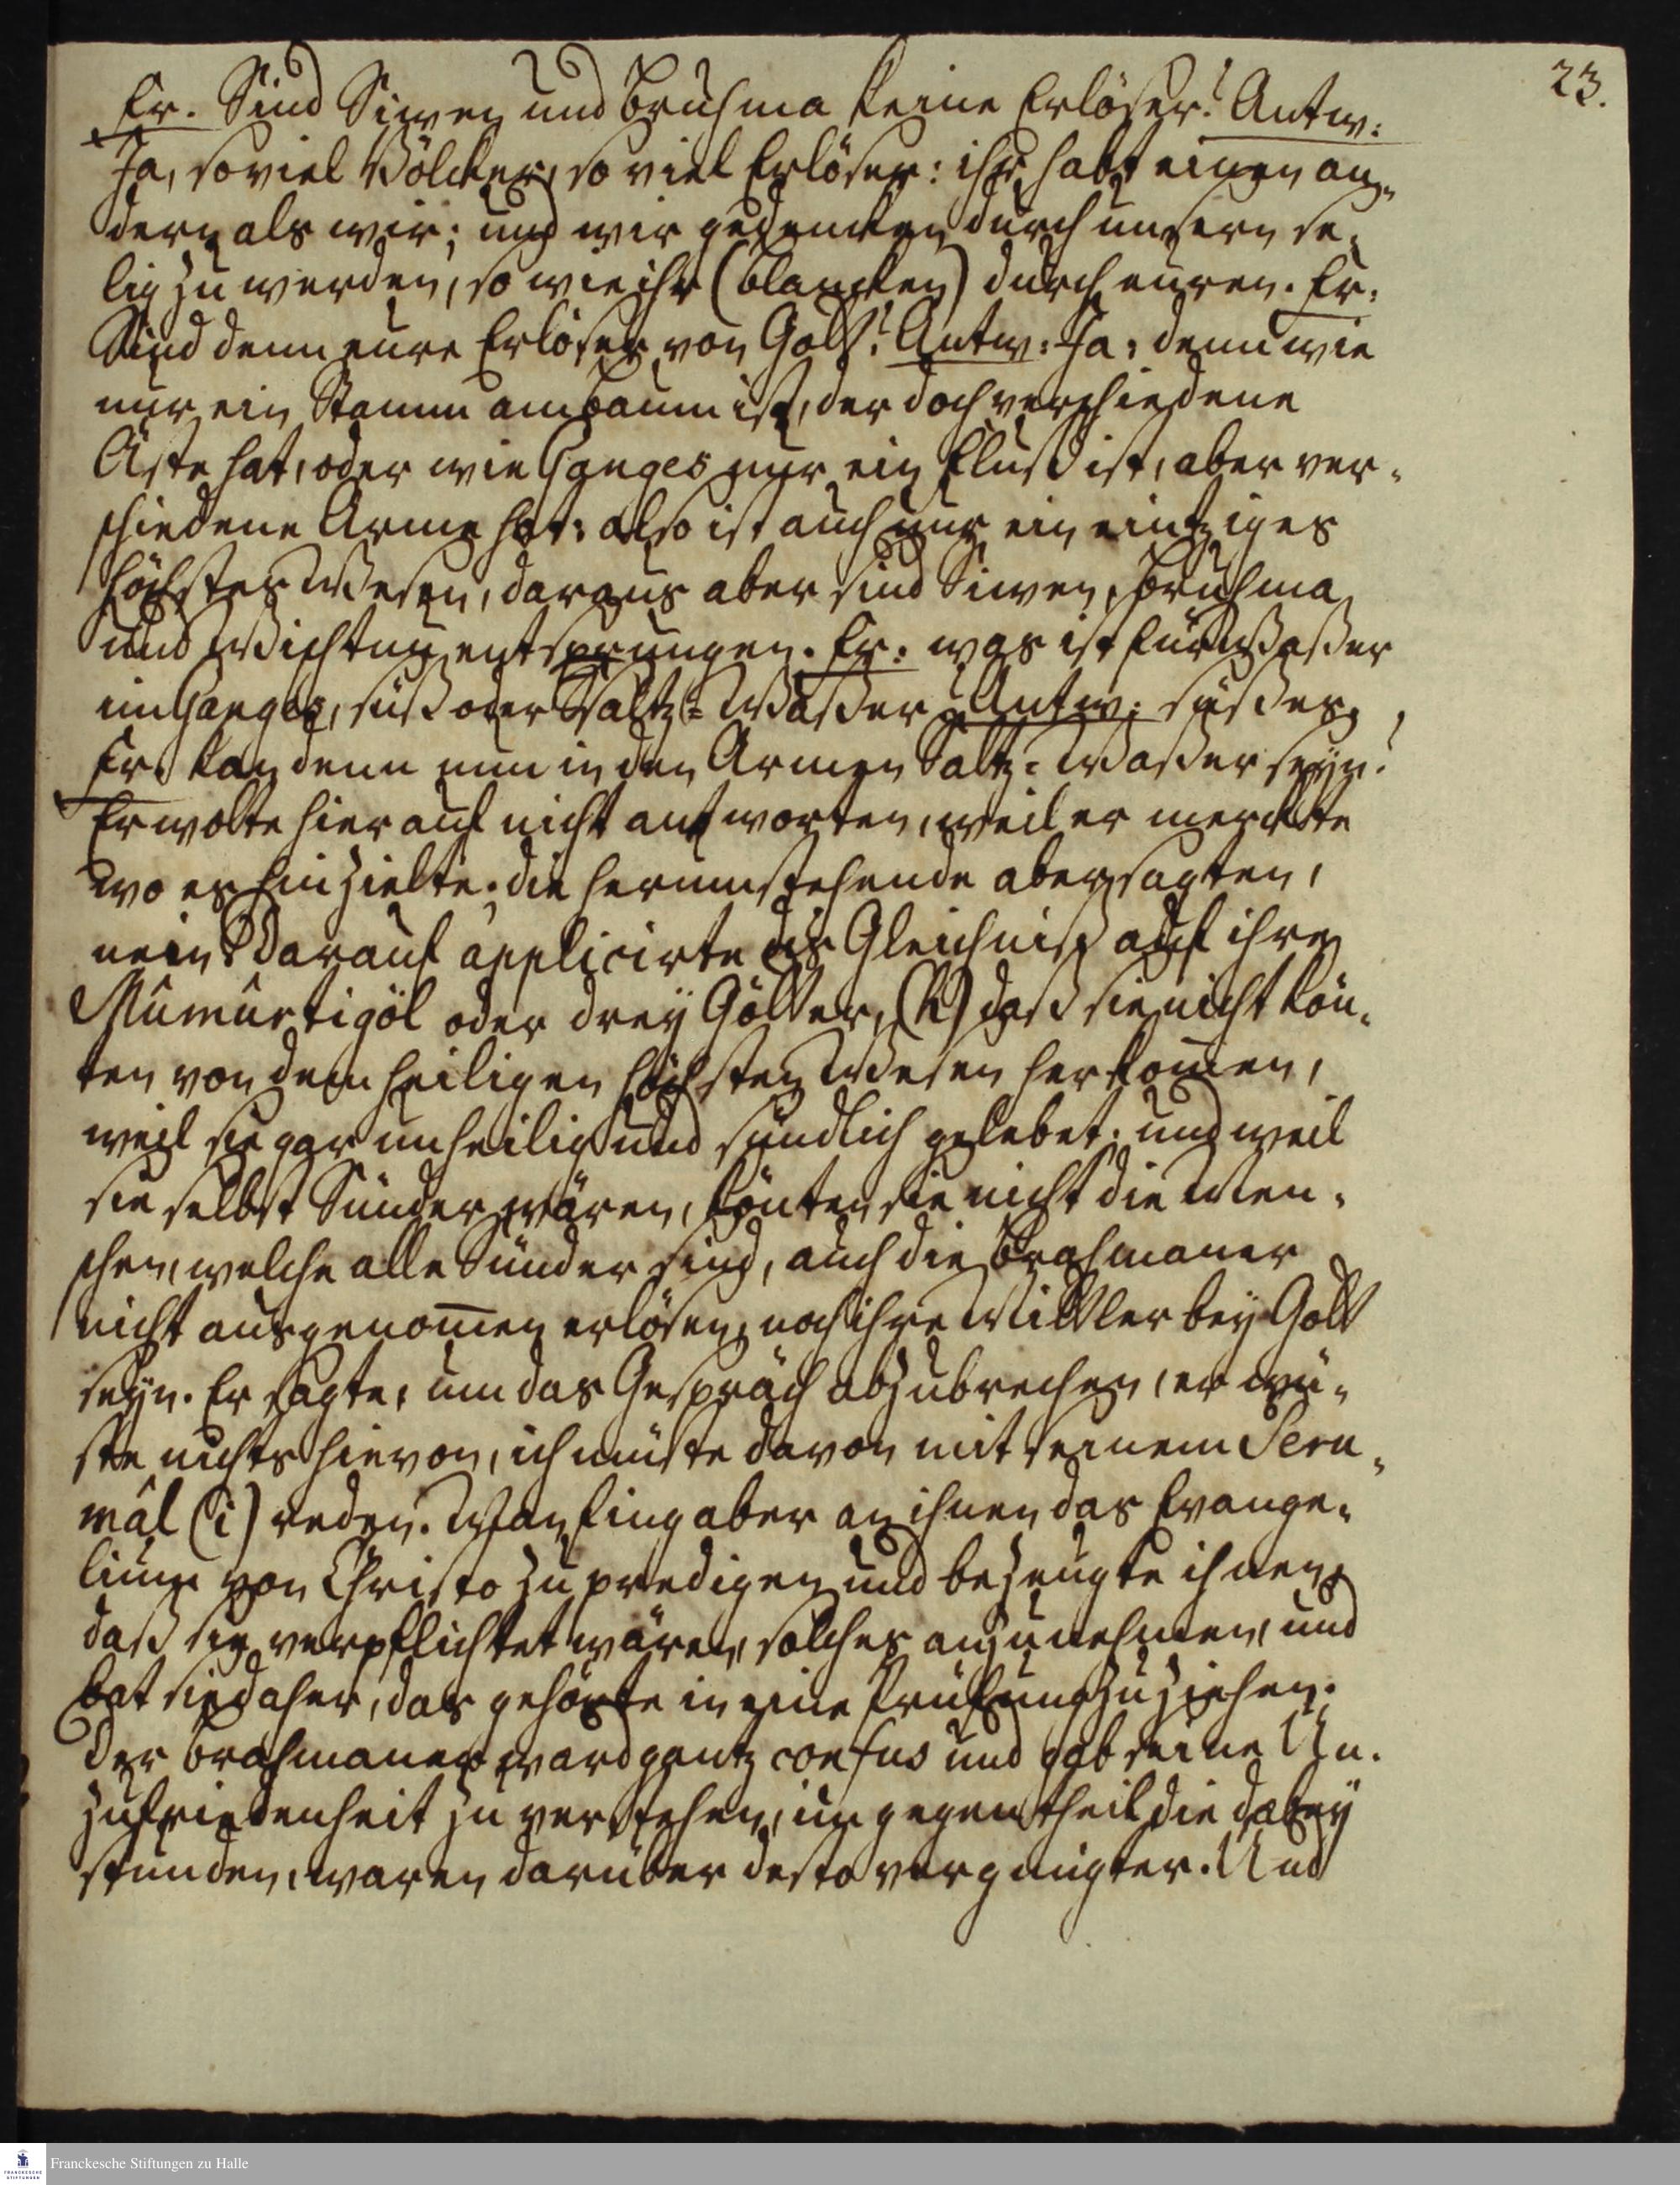 23.
Fr. Sind Siwen und Bruhma keine Erlöser? Antw:
Ja, so viel Völcker, so viel Erlöser: ihr habt einen an-
dern als wir; und wir gedencken durch unsern se-
lig zu werden, so wie ihr (blancken) durch euren. Fr:
Sind denn eure Erlöser von Gott? Antw: Ja, denn wie
nur ein Stamm am Baum ist, der doch verschiedene
Äste hat, oder wie Ganges nur ein Fluß ist, aber ver-
schiedene Arme hat: also ist auch nur ein eintziges
höchstes Wesen, daraus aber sind Siwen, Bruhma
und Wischtnu entsprungen. Fr: was ist für Waßer
im Ganges, süß oder Saltz-Waßer? Antw: süßes,
Fr. kan denn nun in den Armen Saltz-Waßer seyn?
Er wolte hierauf nicht antworten, weil er merckte
wo es hin zielte; die herumstehende aber sagten,
nein. Darauf applicirte das Gleichniß auf ihre
Mumurtigöl oder drey Götter, (h) daß sie nicht kön-
ten von dem heiligen höchsten Wesen herkom̄en,
weil sie gar unheilig und sündlich gelebet; und weil
sie selbst Sünder wären, könten sie nicht die Men-
schen, welche alle Sünder sind, auch die Brahmaner
nicht ausgenom̄en erlösen, noch ihre Mittler bey Gott
seyn. Er sagte, um das Gespräch abzubrechen, er wü-
ste nichts hievon, ich müste davon mit seinem Peru-
mâl (i) reden. Man fing aber an ihnen das Evange-
lium von Christo zu predigen und bezeugte ihnen,
daß sie verpflichtet wären, solches anzunehmen, und
bat sie daher, das gehörte in eine Prüfung zu ziehen.
Der Brahmaner ward gantz confus und gab seine Un-
zufriedenheit zu verstehen, im gegentheil die dabey
stunden, waren darüber desto vergnügter. Und
Franckesche Stiftungen zu Halle
FRANCKESCHE
STIFTUNGEN